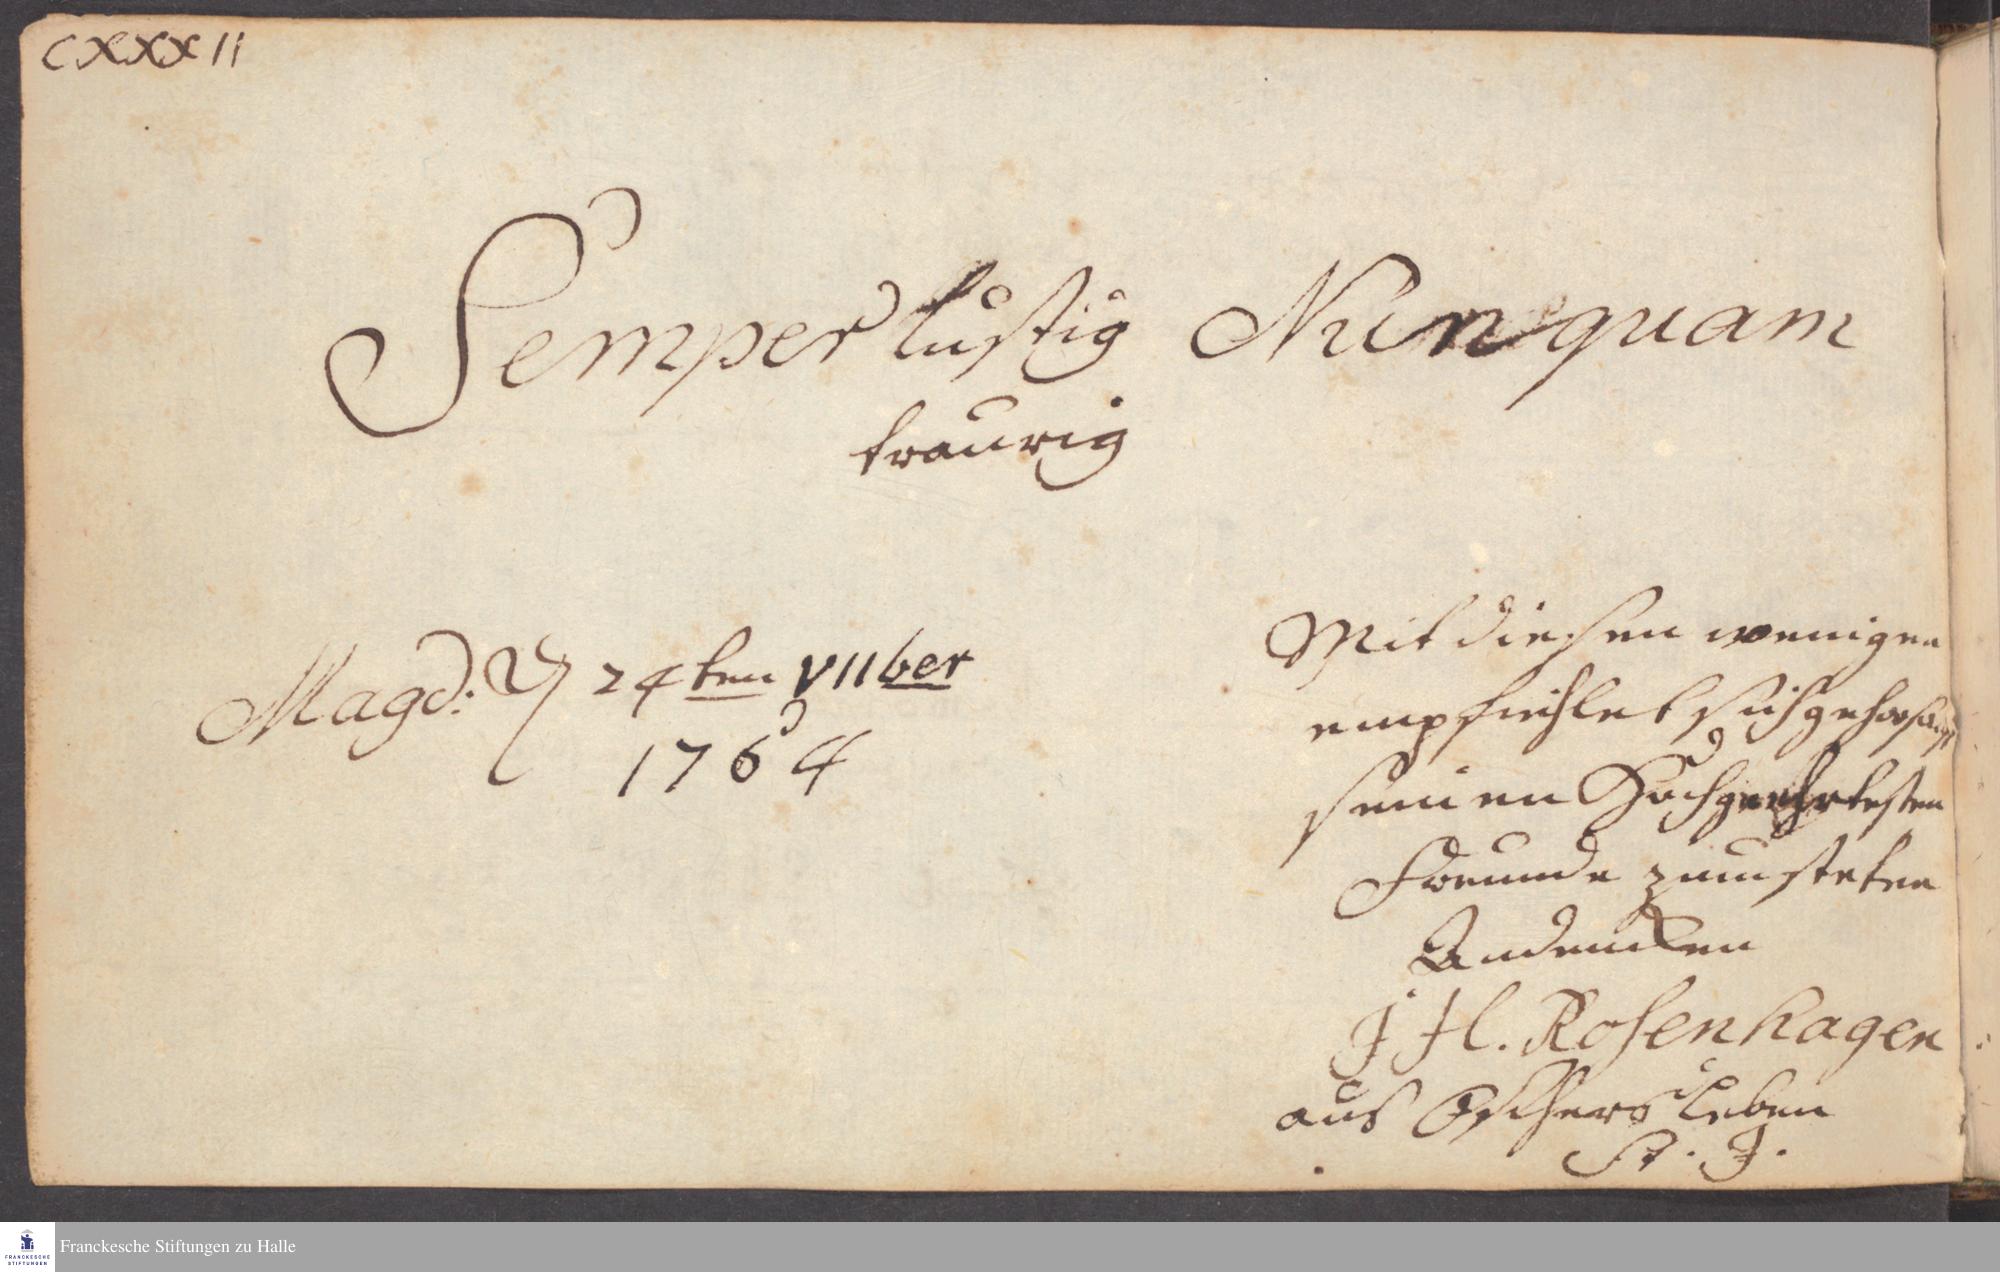 CXXXII
Semper lustig Nunquam
traurig
Magd: 24ten VIIber
1764
Mit diesen wenigen
empfiehlet sich gehorsamst
seinen Hochgeehrtesten
Freunde zum steten
Andencken
J H. Rosenhagen
aus Oschersleben
St. J.
FRANCKESCHE
STIFTUNGEN
Franckesche Stiftungen zu Halle